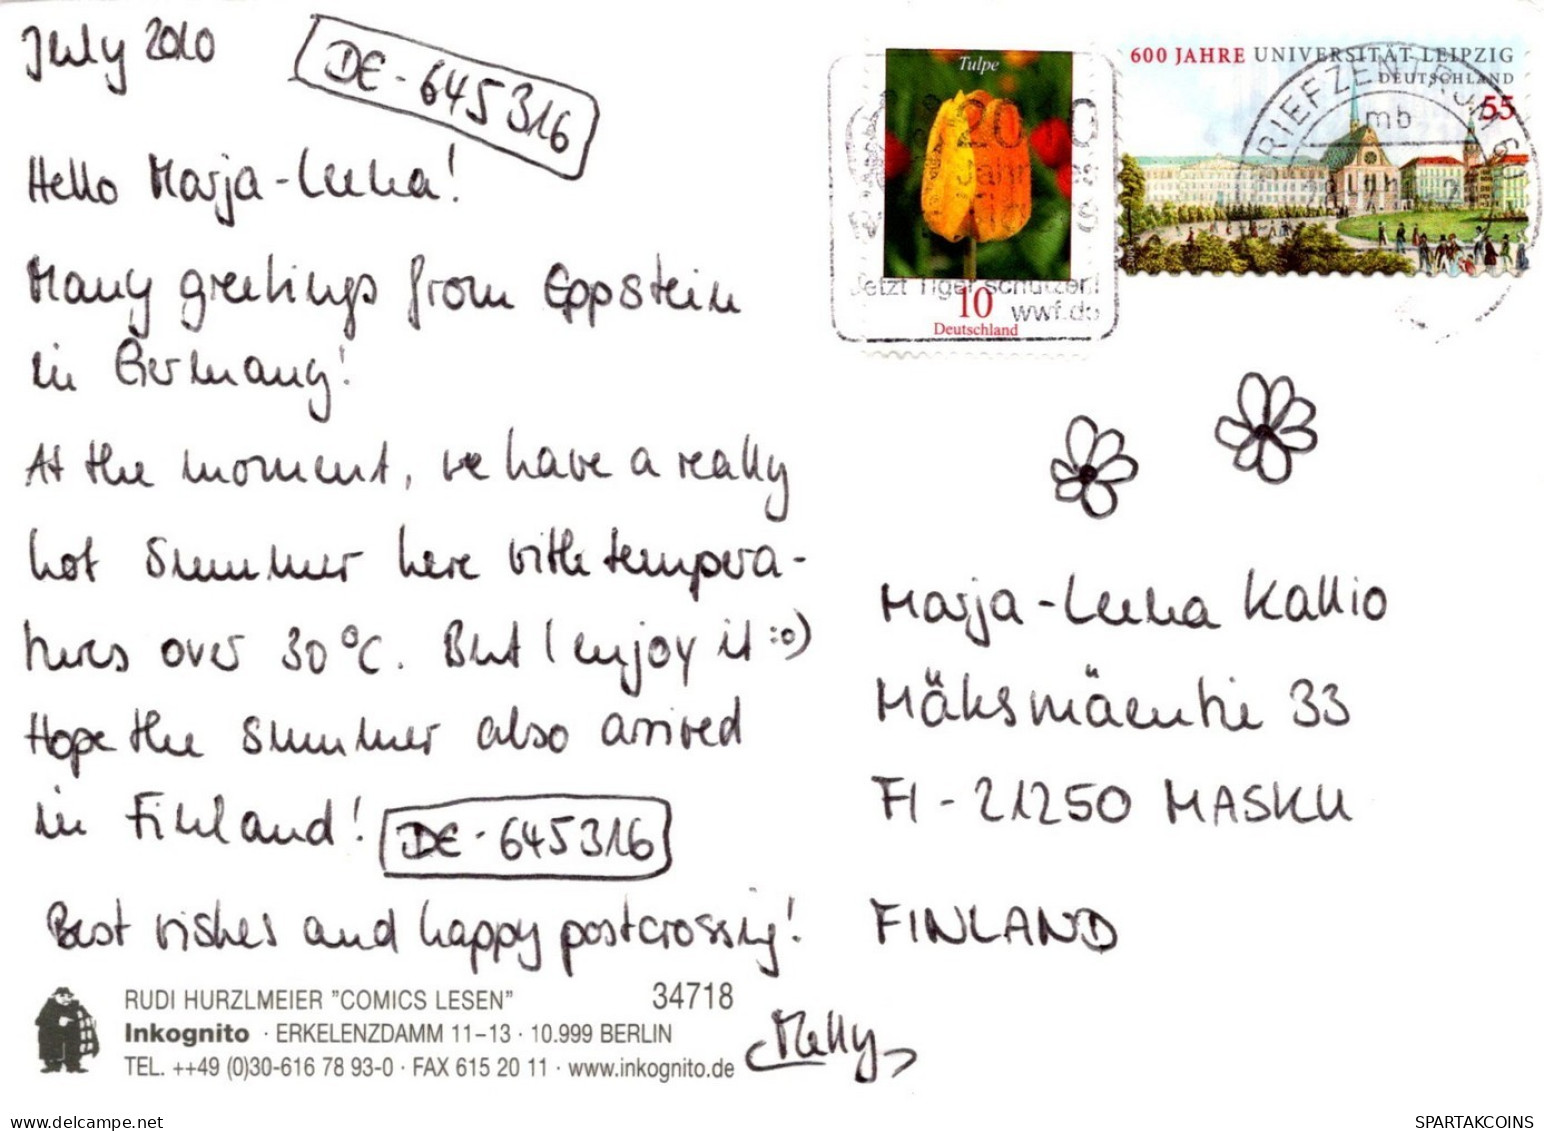 July 2010
DE-645316
Hello Marja-Leena!
Many greetings from Eppstein
in Germany!
At the moment, we have a really
hot Summer here with tempera-
tures over 30°C. But I enjoy it :o)
Hope the Summer also arrived
in Finland!
DE-645316
Best wishes and happy postcrossing!
Melly
RUDI HURZLMEIER "COMICS LESEN" 34718
Inkognito · ERKELENZDAMM 11–13 · 10.999 BERLIN
TEL. ++49 (0)30-616 78 93-0 · FAX 615 20 11 · www.inkognito.de
Tulpe
10
Deutschland
2010
Jahr des
Jetzt Tiger schützen!
wwf.de
600 JAHRE UNIVERSITÄT LEIPZIG
DEUTSCHLAND
55
BRIEFZENTRUM 60
mb
Marja-Leena Kallio
Mäksmäentie 33
FI-21250 MASKU
FINLAND
www.delcampe.net
SPARTAKCOINS